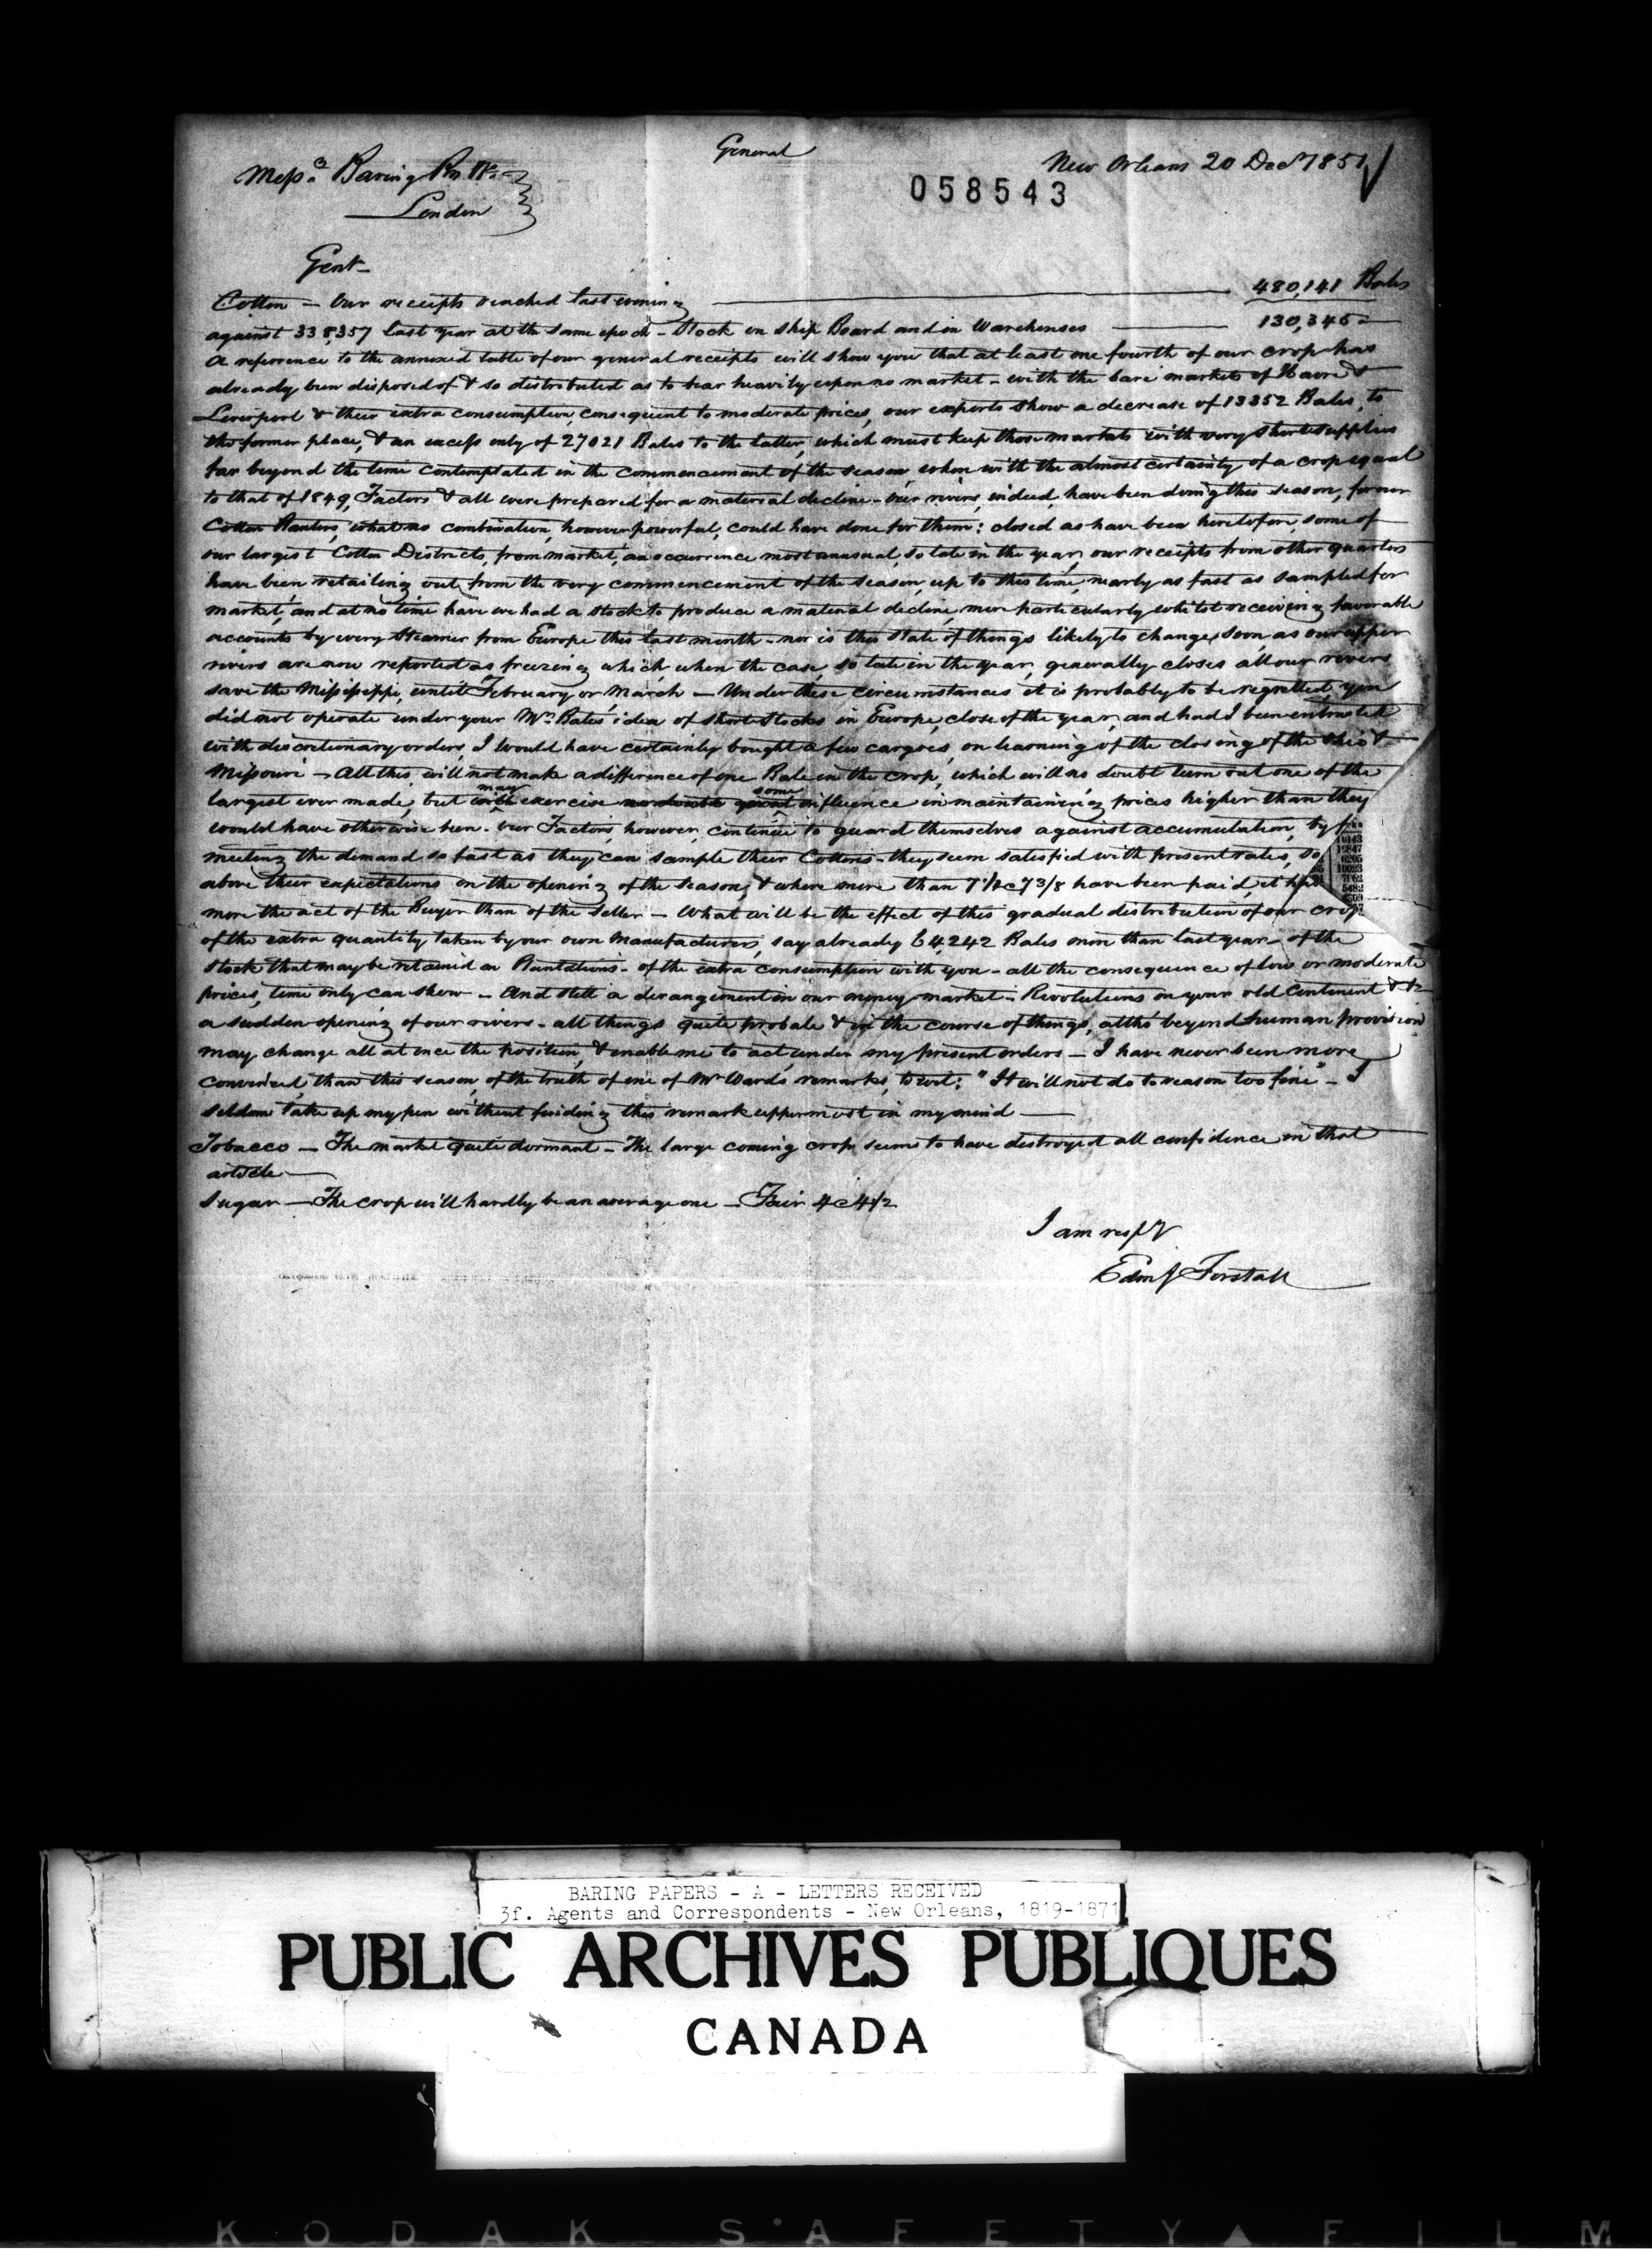 General
New Orleans 20 Decr 1851
Messrs Baring Bros &
058543
London
Gent
Cotton — Our receipts reached last evening — 480,141 Bales
against 338,357 last year at the same epoch — Stock on ship Board and in Warehouses — 130,346
A reference to the annexed table of our general receipts will show you that at least one fourth of our crop has
already been disposed of & so distributed as to bear heavily upon no market — with the bare markets of Havre &
Liverpool & their extra consumption, consequent to moderate prices, our exports show a decrease of 13352 Bales, to
the former place, & an excess only of 27021 Bales to the latter, which must keep those markets with very short supplies
far beyond the time contemplated in the commencement of the season, when with the almost certainty of a crop equal
to that of 1849, Factors & all were prepared for a material decline — our rivers, indeed, have been doing this season, for our
Cotton Planters, what no combination, however powerful, could have done for them: closed as have been heretofore, some of
our largest Cotton Districts, from market, an occurrence most unusual, so late in the year, our receipts from other quarters
have been retailing out from the very commencement of the season, up to this time, nearly as fast as sampled for
market, and at no time have we had a stock to produce a material decline, more particularly whilst receiving favorable
accounts by every Steamer from Europe this last month — nor is this state of things likely to change, soon, as our upper
rivers are now reported as freezing, which, when the case, so late in the year, generally closes all our rivers
save the Missisippi, until February or March — Under these circumstances it is probably to be regretted, you
did not operate under your Mr Bates' idea of short Stocks in Europe, close of the year, and had I been entrusted
with discretionary orders, I would have certainly bought a few cargoes, on learning of the closing of the Ohio &
Missouri — All this will not make a difference of one Bale in the crop, which will no doubt turn out one of the
largest ever made, but will may exercise no doubt great some influence in maintaining prices higher than they
would have otherwise been — our Factors, however, continue to guard themselves against accumulation, by
meeting the demand so fast as they can sample their Cottons — they seem satisfied with present rates, so
above their expectations on the opening of the season, & where more than 7 1/4 c 7 3/8 have been paid, it
more the act of the Buyer than of the Seller — What will be the effect of this gradual distribution of our crop
of the extra quantity taken by our own Manufacturers, say already 64,242 Bales more than last year — of the
stock that may be retained on Plantations — of the extra consumption with you — all the consequence of low or moderate
prices, time only can show — And still a derangement in our money market — Revolutions on your old Continent & &
a sudden opening of our rivers — all things quite probale & in the course of things, altho' beyond human provision
may change all at once the position, & enable me to act under my present orders — I have never been more
convinced than this season, of the truth of one of Mr Ward's remarks, to wit: "It will not do to reason too fine" — I
seldom take up my pen without finding this remark uppermost in my mind —
Tobacco — The market quite dormant — The large coming crop seems to have destroyed all confidence in that
article —
Sugar — The crop will hardly be an average one — Fair 4 c 4 1/2
I am respy
Edm J Forstall
BARING PAPERS - A - LETTERS RECEIVED
3f. Agents and Correspondents - New Orleans, 1819-1871
PUBLIC ARCHIVES PUBLIQUES
CANADA
KODAK SAFETY FILM